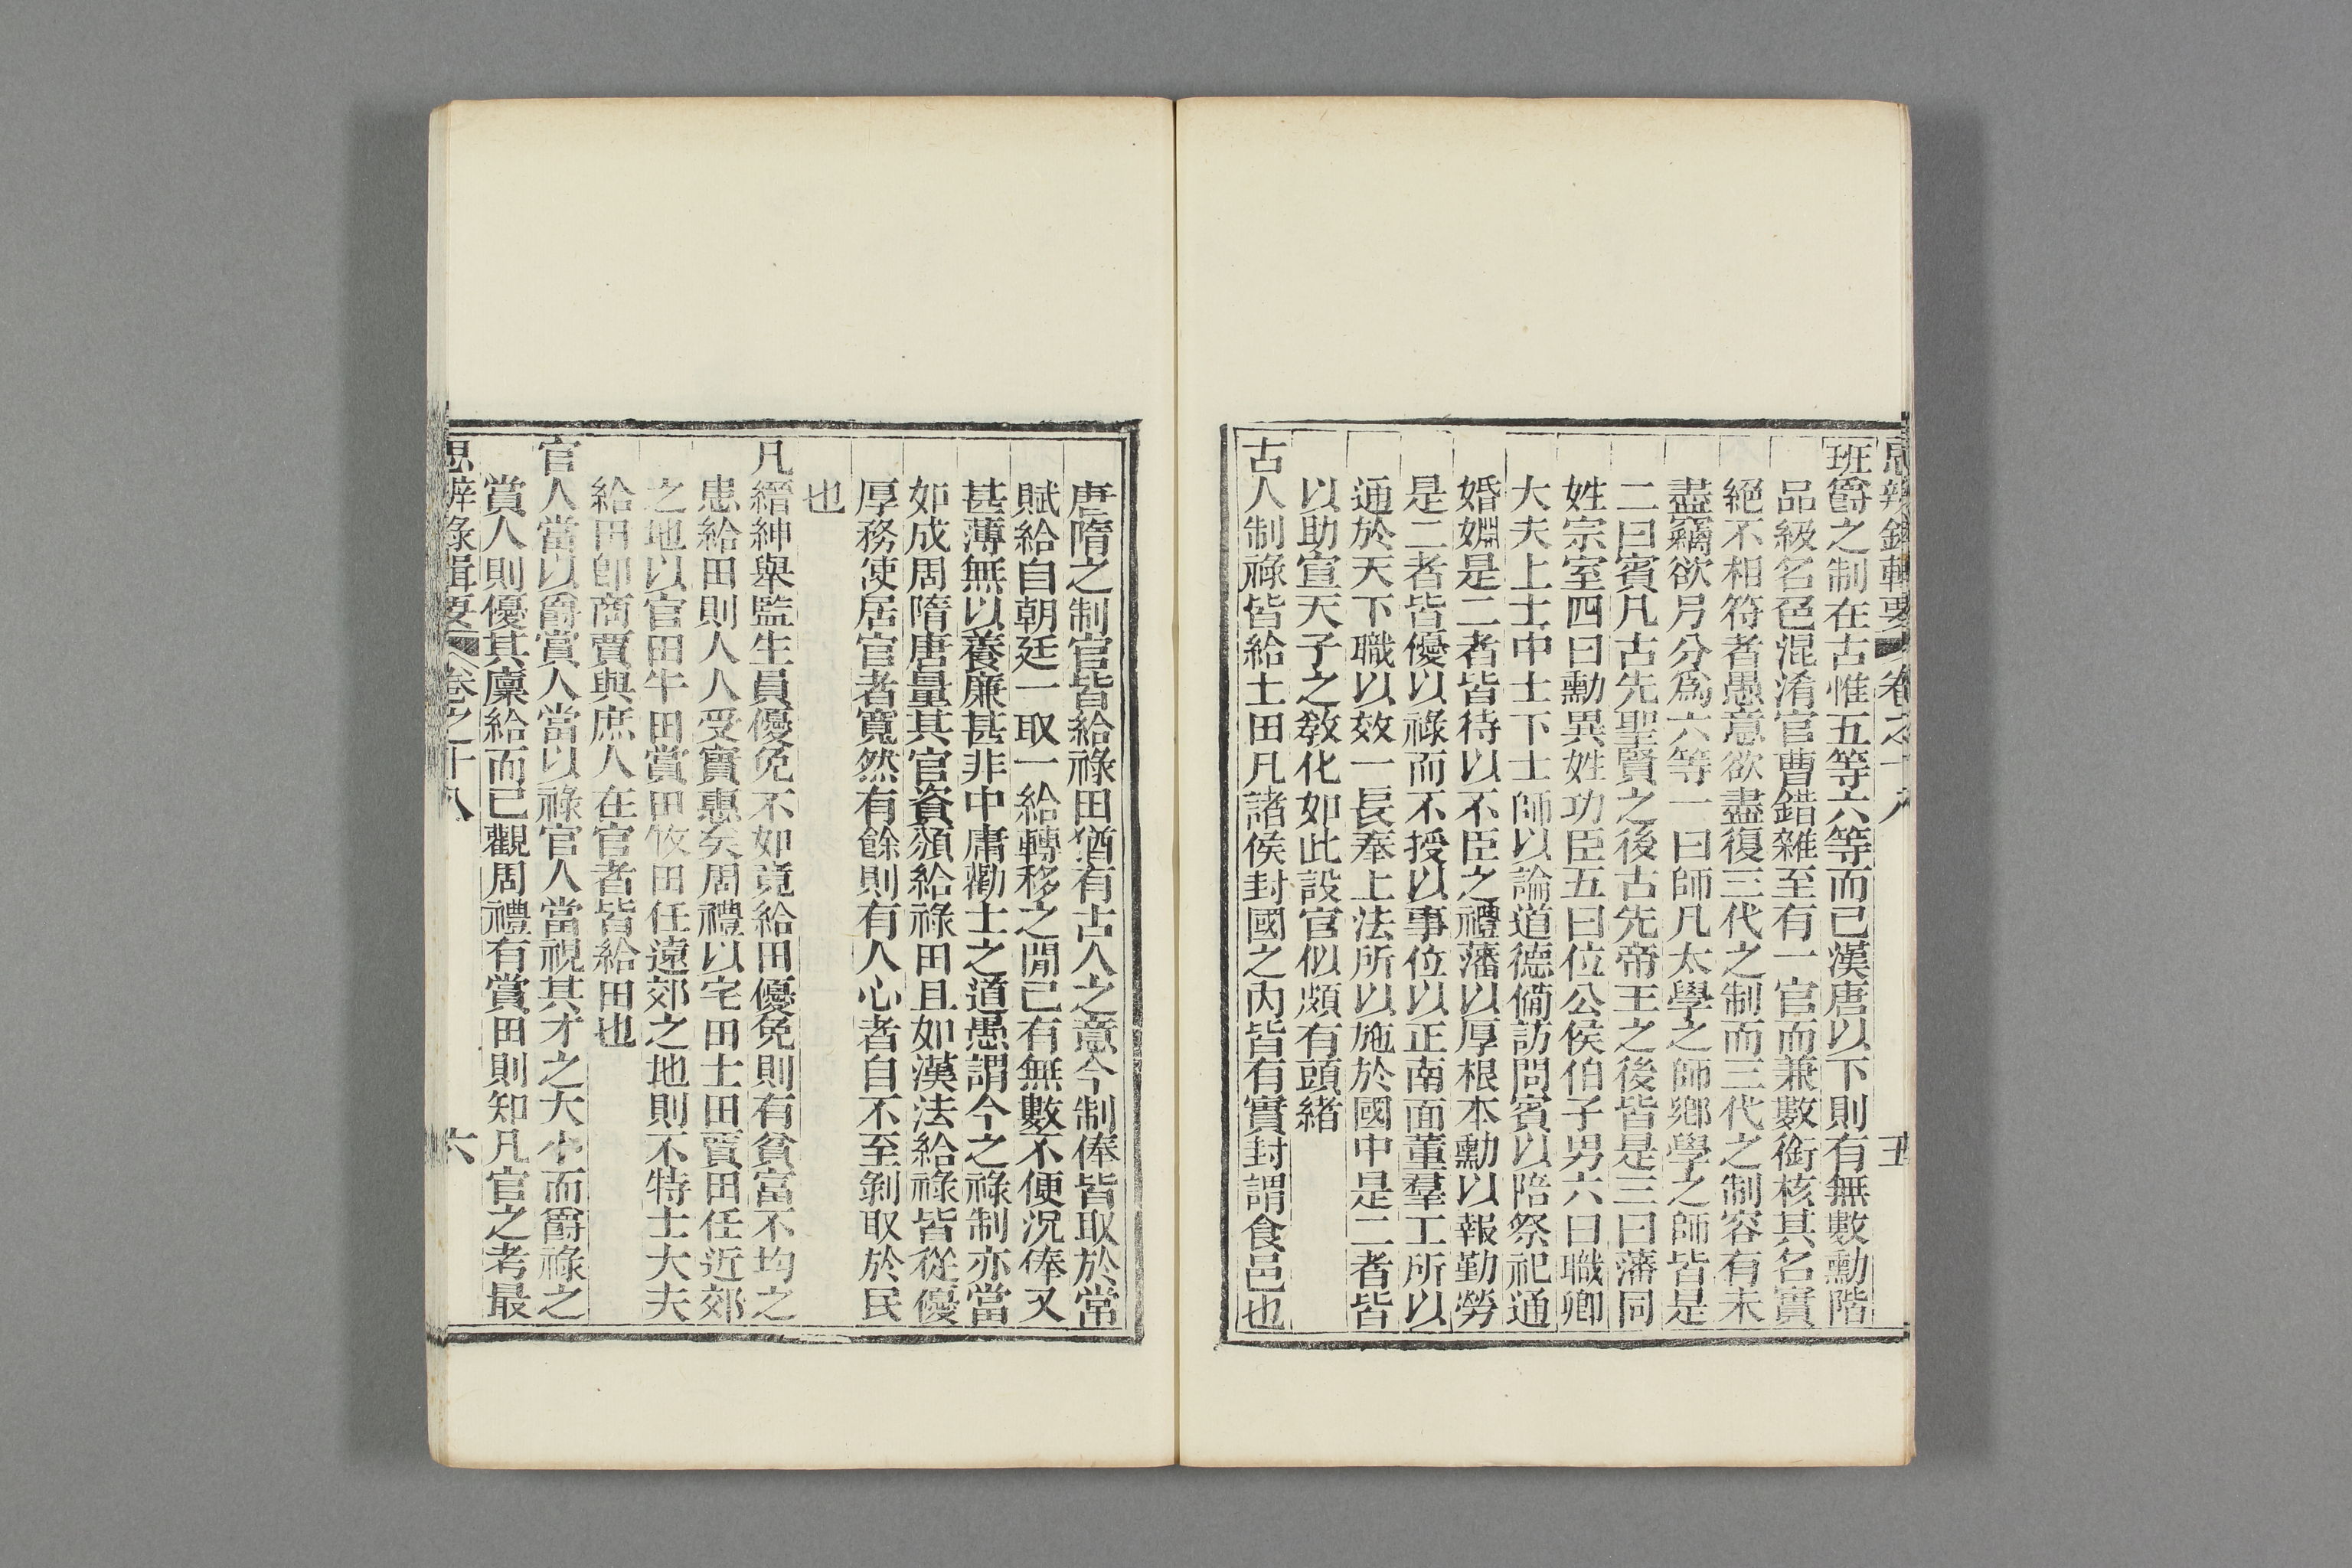 思辨錄輯要 卷之十八 五
班爵之制在古惟五等六等而已漢唐以下則有無數勳階
品級名色混淆官曹錯雜至有一官而兼數銜核其名實
絕不相符者愚意欲盡復三代之制而三代之制容有未
盡竊欲另分為六等一曰師凡太學之師鄉學之師皆是
二曰賓凡古先聖賢之後古先帝王之後皆是三曰藩同
姓宗室四曰勳異姓功臣五曰位公侯伯子男六曰職卿
大夫上士中士下士師以論道德備訪問賓以陪祭祀通
婚婣是二者皆待以不臣之禮藩以厚根本勳以報勤勞
是二者皆優以祿而不授以事位以正南面董羣工所以
通於天下職以效一長奉上法所以施於國中是二者皆
以助宣天子之敎化如此設官似頗有頭緒
古人制祿皆給土田凡諸侯封國之內皆有實封謂食邑也
唐隋之制官皆給祿田猶有古人之意今制俸皆取於常
賦給自朝廷一取一給轉移之閒已有無數不便況俸又
甚薄無以養廉甚非中庸勸士之道愚謂今之祿制亦當
如成周隋唐量其官資頒給祿田且如漢法給祿皆從優
厚務使居官者寬然有餘則有人心者自不至剝取於民
也
凡縉紳舉監生員優免不如竟給田優免則有貧富不均之
患給田則人人受實惠矣周禮以宅田士田賈田任近郊
之地以官田牛田賞田牧田任遠郊之地則不特士大夫
給田卽商賈與庶人在官者皆給田也
官人當以爵賞人當以祿官人當視其才之大小而爵祿之
賞人則優其廩給而已觀周禮有賞田則知凡官之考最
思辨錄輯要 卷之十八 六